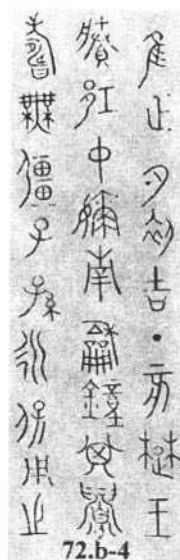 隹正月初吉丁亥楚王
賸邛中嬭南龢鐘其眉
壽無彊子孫永保用之
72.b-4